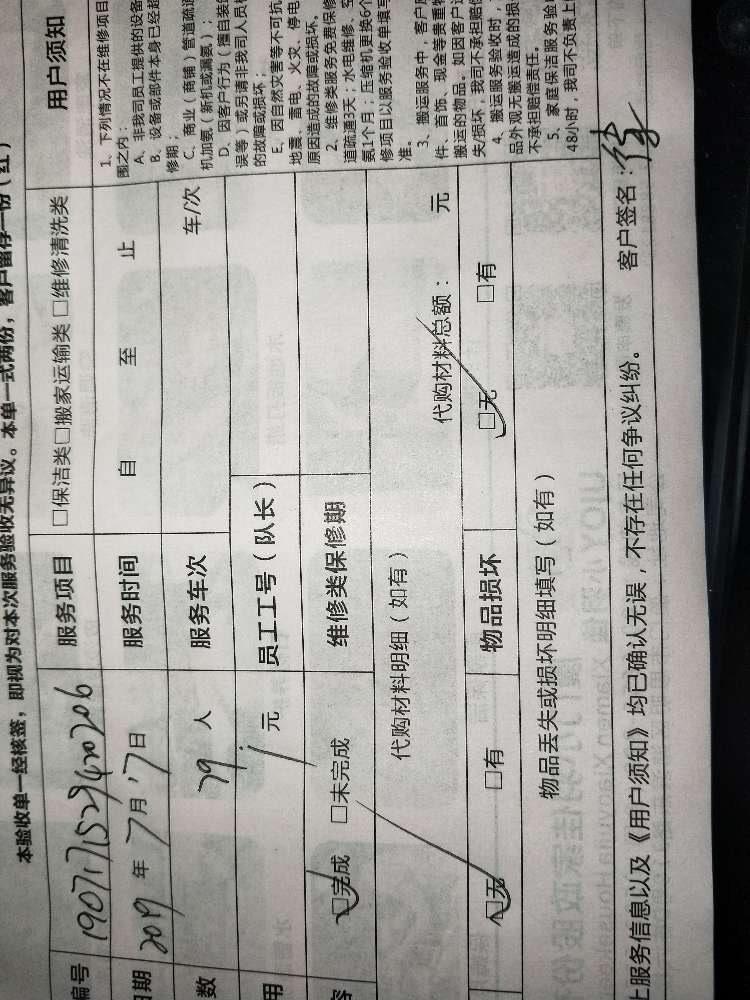 本验收单一经核签，即视为对本次服务验收无异议。本单一式两份，客户留存一份（红）
编号 1907171529420206 服务项目 □保洁类□搬家运输类 □维修清洗类 用户须知
日期 2019 年 7 月 17 日 服务时间 自 至 止
数 人 服务车次 车/次
用 元 员工工号（队长）
容 □完成 □未完成 维修类保修期
代购材料明细（如有） 代购材料总额： 元
□无 □有 物品损坏 □无 □有
物品丢失或损坏明细填写（如有）
1、下列情况不在维修项目
围之内：
A、非我司员工提供的设备
B、设备或部件本身已经超
修期；
C、商业（商铺）管道疏通
机加氨（新机或漏氨）；
D、因客户行为（擅自装
误等）或另请非我司人员
的故障或损坏；
E、因自然灾害等不可抗
地震、雷电、火灾、停电
原因造成的故障或损坏。
2、维修类服务免费保修
道疏通3天；水电维修、空
氨1个月；压缩机更换6个
修项目以服务验收单填写
准。
3、搬运服务中，客户
件、首饰、现金等贵重物
搬运的物品。如因客户
失/损坏，我司不承担赔偿
4、搬运服务验收时，
品外观无搬运造成的损
不承担赔偿责任。
5、家庭保洁服务验收
48小时，我司不负责上
上服务信息以及《用户须知》均已确认无误，不存在任何争议纠纷。 客户签名：